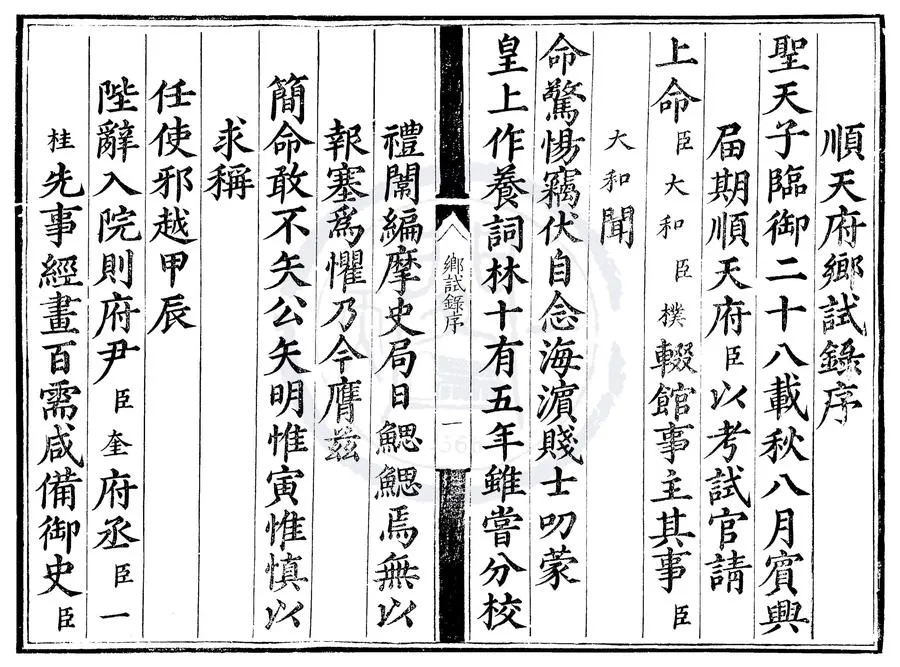 順天府鄉試錄序
聖天子臨御二十八載秋八月賓興
屆期順天府臣以考試官請
上命臣大和臣樸輟館事主其事臣
大和聞
命驚惕竊伏自念海濵賤士叨蒙
皇上作養詞林十有五年雖嘗分校
鄉試錄序
一
禮闈編摩史局日鰓鰓焉無以
報塞爲懼乃今膺兹
簡命敢不矢公矢明惟寅惟慎以
求稱
任使邪越甲辰
陛辭入院則府尹臣奎府丞臣一
桂先事經畫百需咸備御史臣